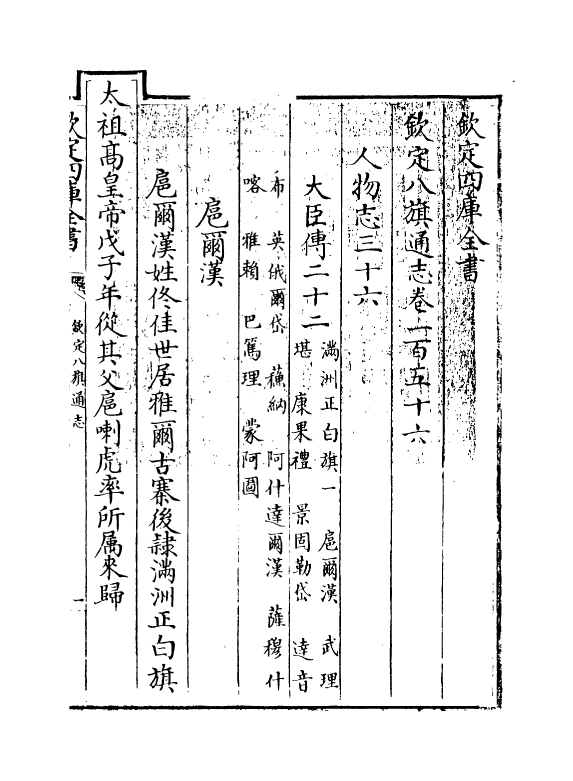 欽定四庫全書
欽定八旗通志卷二百五十六
人物志三十六
大臣傳二十二 滿洲正白旗一 扈爾漢 武理
堪 康果禮 景固勒岱 達音
布 英俄爾岱 蘓納 阿什達爾漢 薩穆什
喀 雅賴 巴篤理 蒙阿圖
扈爾漢
扈爾漢姓佟佳世居雅爾古寨後隷滿洲正白旗
太祖高皇帝戊子年從其父扈喇虎率所属來歸
欽定四庫全書
欽定八旗通志
一